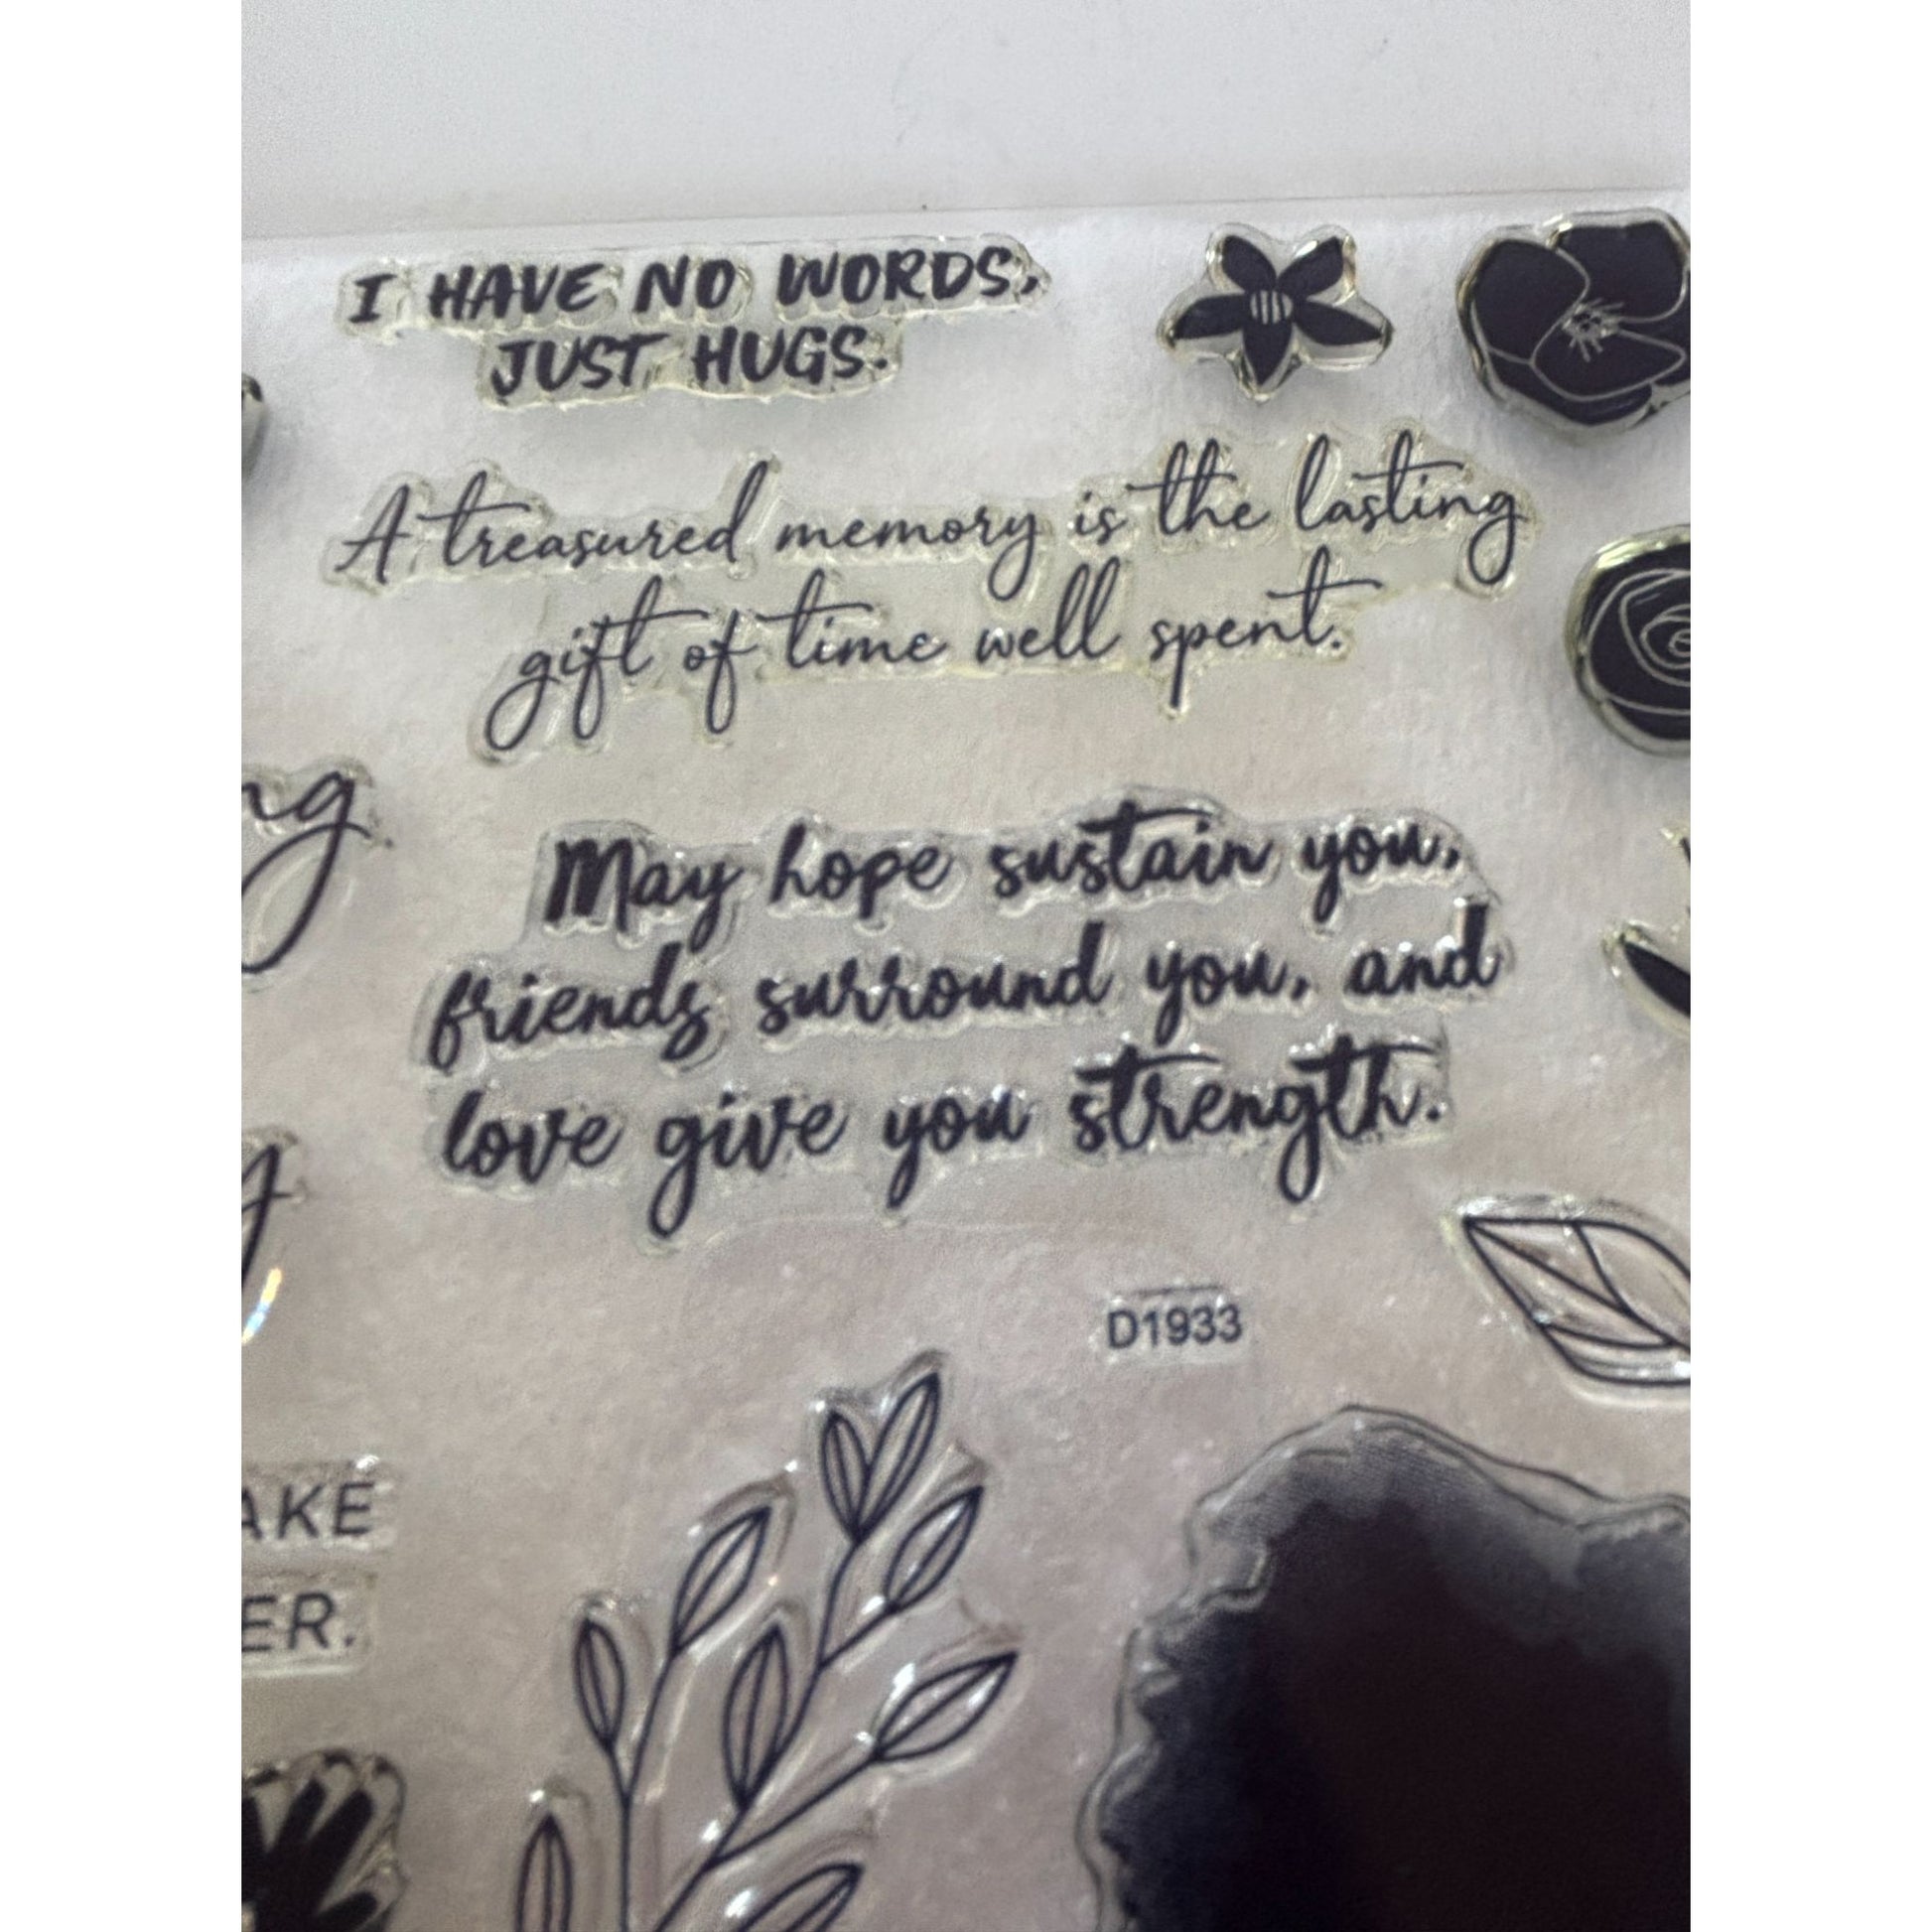 I HAVE NO WORDS,
JUST HUGS.
A treasured memory is the lasting
gift of time well spent.
May hope sustain you,
friends surround you, and
love give you strength.
D1933